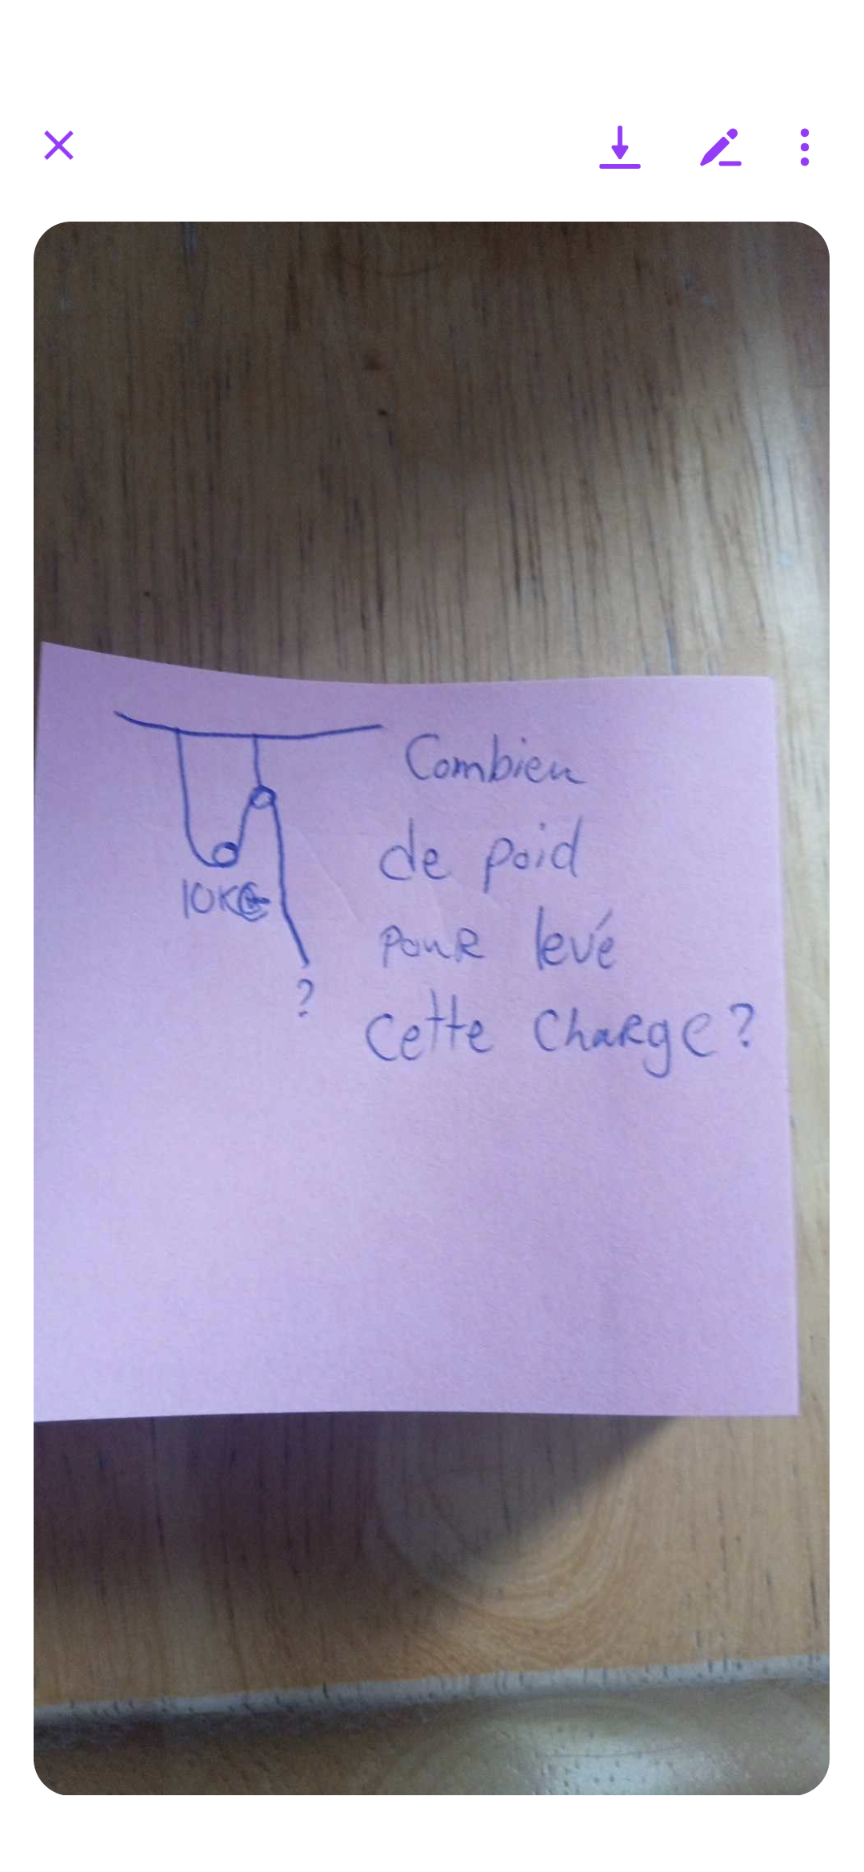 Combien
de poid
10KG
pour levé
?
cette charge?